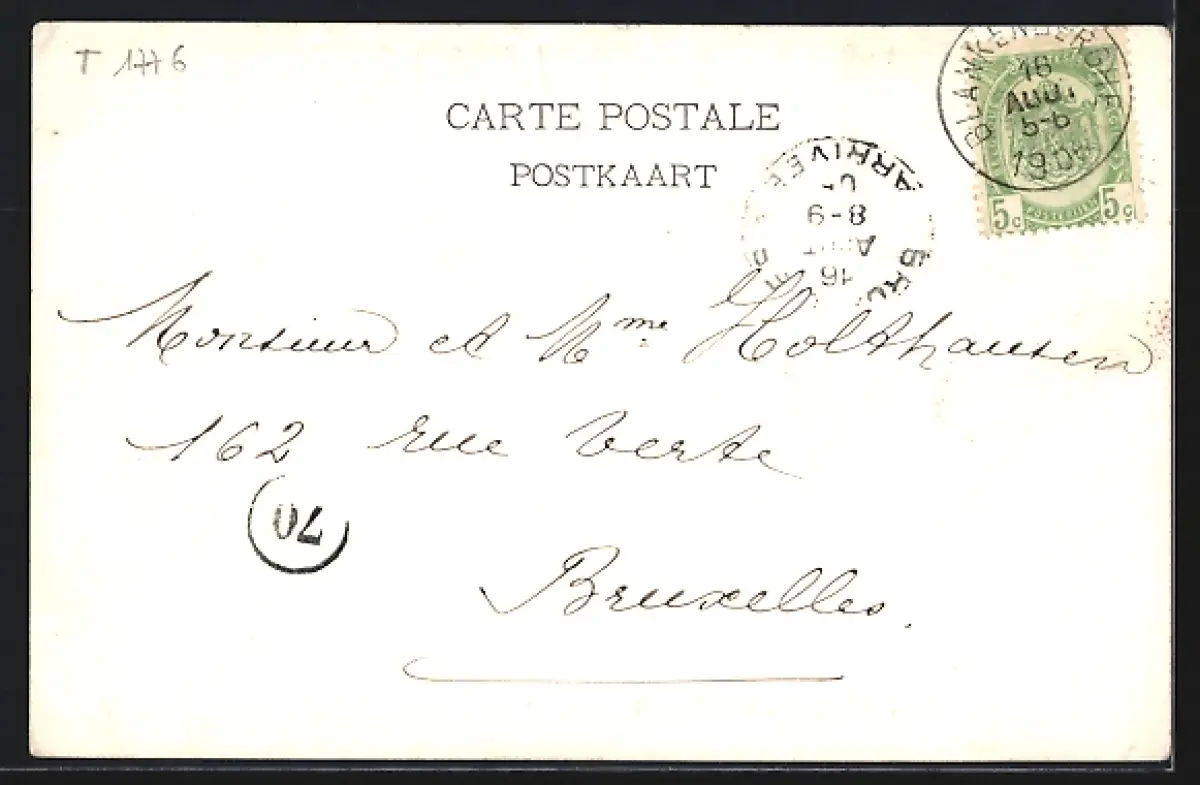 T 1776
CARTE POSTALE
POSTKAART
BLANKENBERGHE
16
AOUT
5-6
ARRIVEE
8-9
AOUT
16
5c POSTERIJEN 5c
Monsieur et Mme Holthausen
162 rue Verte
70
Bruxelles.